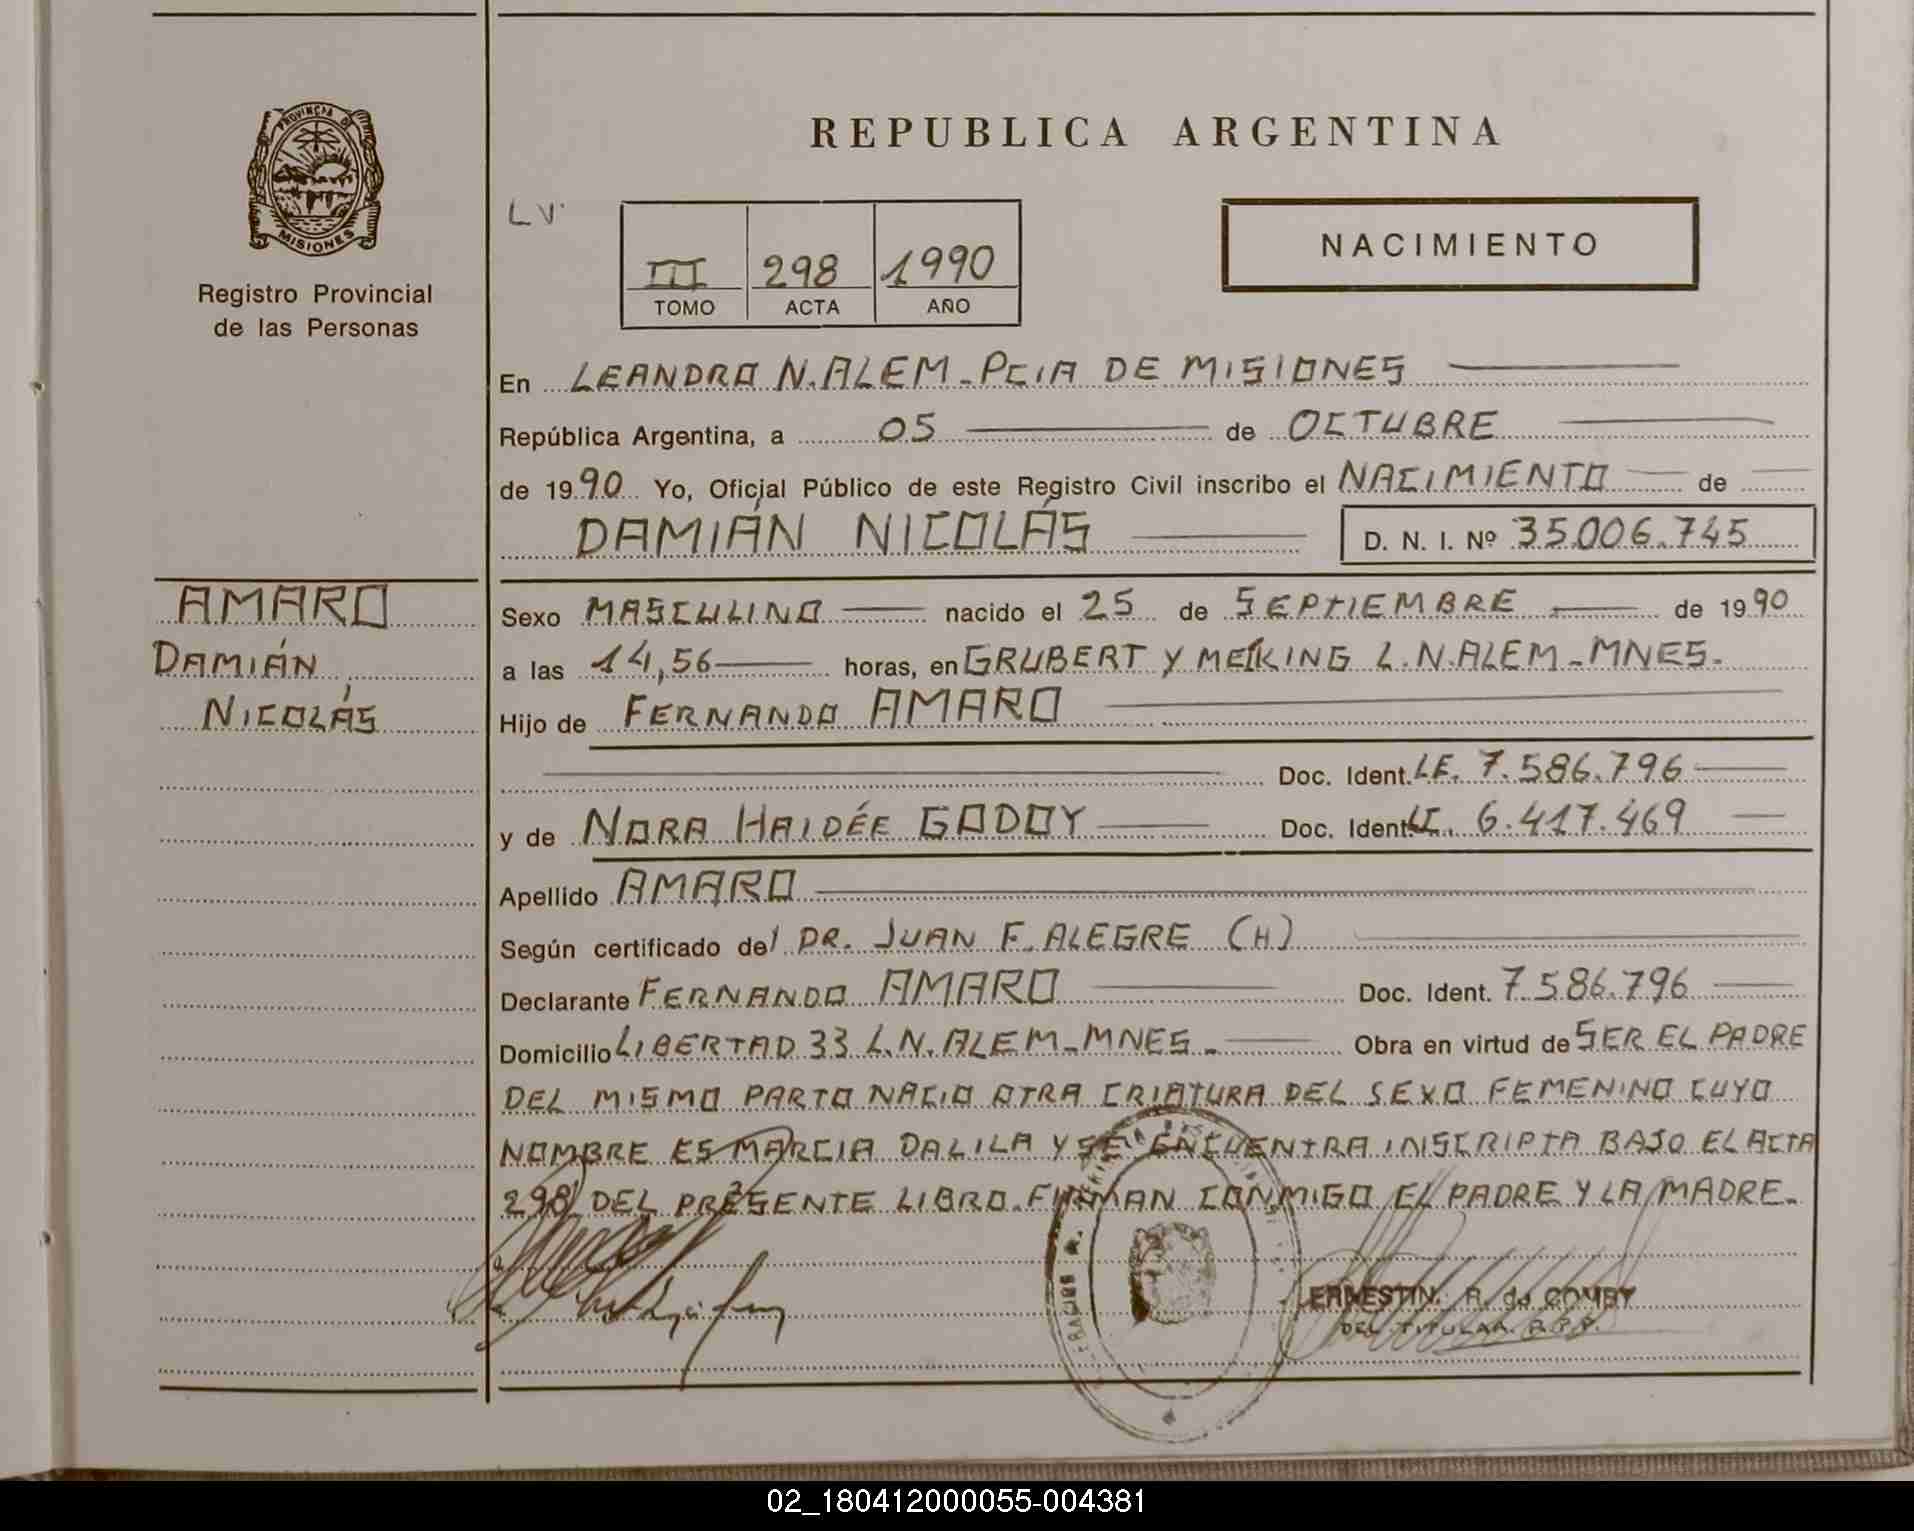 PROVINCIA DE
MISIONES
Registro Provincial
de las Personas
REPUBLICA ARGENTINA
LV.
III 298 1990
TOMO ACTA AÑO
NACIMIENTO
En LEANDRO N. ALEM - PCIA DE MISIONES
República Argentina, a 05 de OCTUBRE
de 1990 Yo, Oficial Público de este Registro Civil inscribo el NACIMIENTO de
DAMIÁN NICOLÁS D. N. I. Nº 35.006.745
AMARO
DAMIÁN
NICOLÁS
Sexo MASCULINO nacido el 25 de SEPTIEMBRE de 1990
a las 14,56 horas, en GRUBERT Y MEIKING L.N.ALEM - MNES.
Hijo de FERNANDO AMARO
Doc. Ident. LE. 7.586.796
y de NORA HAIDÉE GODOY Doc. Ident. 6.417.469
Apellido AMARO
Según certificado del DR. JUAN F. ALEGRE (H)
Declarante FERNANDO AMARO Doc. Ident. 7.586.796
Domicilio LIBERTAD 33 L.N. ALEM - MNES - Obra en virtud de SER EL PADRE
DEL MISMO PARTO NACIO OTRA CRIATURA DEL SEXO FEMENINO CUYO
NOMBRE ES MARCIA DALILA Y SE ENCUENTRA INSCRIPTA BAJO EL ACTA
298 DEL PRESENTE LIBRO. FIRMAN CONMIGO EL PADRE Y LA MADRE.
R. de
DEL. TITULAR. R.P.P.
02_180412000055-004381